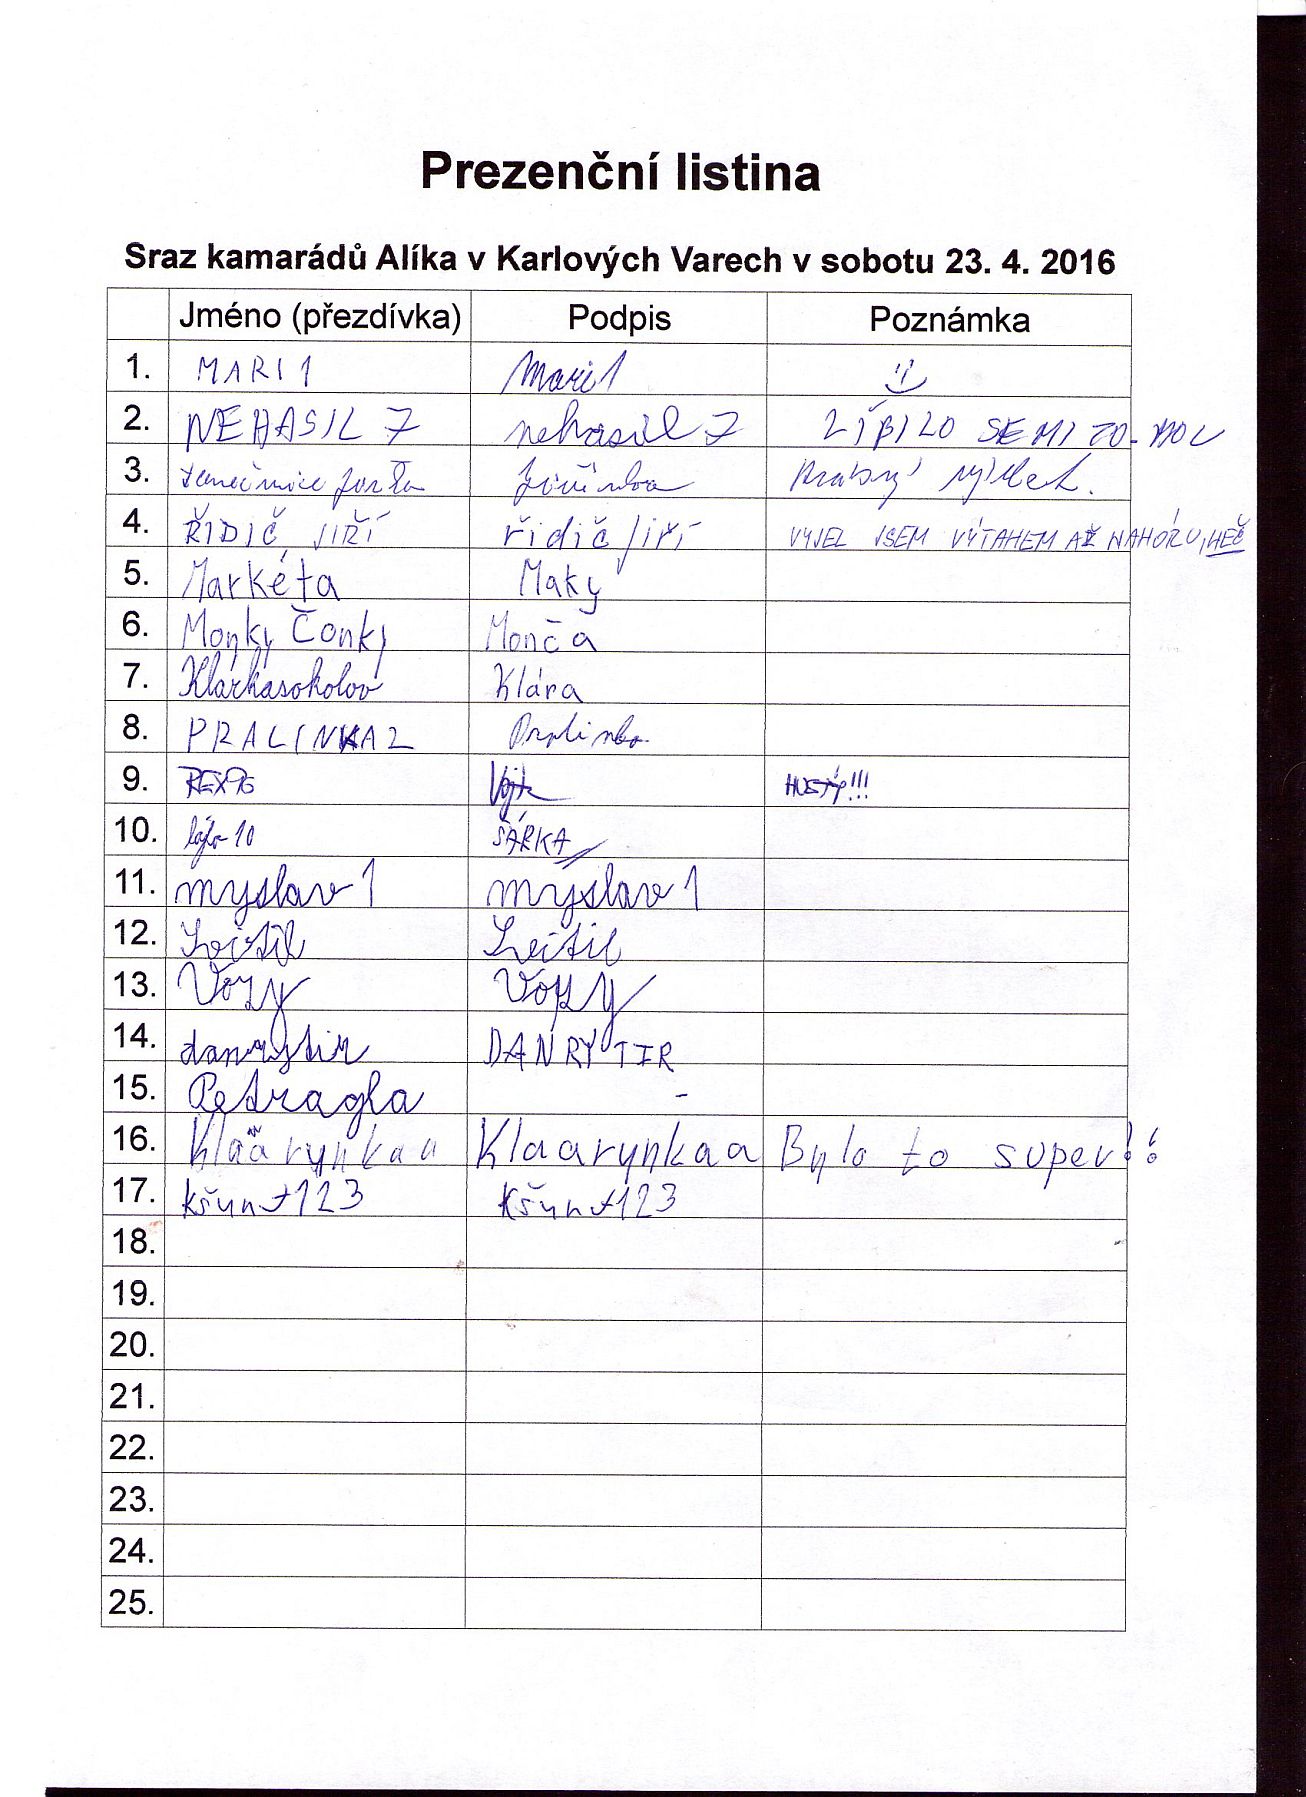 Prezenční listina
Sraz kamarádů Alíka v Karlových Varech v sobotu 23. 4. 2016
Jméno (přezdívka) Podpis Poznámka
1. MARI1 Mari1
2. NEHASIL 7 nehasil 7 LÍBILO SE MI TO - MOC
3. Jiřinka výlet.
4. ŘIDIČ JIŘÍ řidič Jiří VYJEL JSEM VÝTAHEM AŽ NAHORU, HEČ
5. Markéta Maky
6. Monky Čonky Monča
7. Klárkasokolov Klára
8. PRALINKA2 Pralinka
9. REX96 Vojta HUSTÝ!!!
10. ŠÁRKA
11. myslav1 myslav1
12.
13.
14. danrytir DANRYTIR
15. Petragla -
16. Klaarynkaa Klaarynkaa Bylo to super!!
17. kšunt123 kšunt123
18.
19.
20.
21.
22.
23.
24.
25.